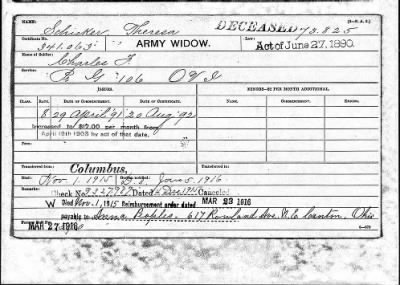 NAME: [3—R. A. S.]
Schicker, Theresa DECEASED 73.825
Certificate No. ARMY WIDOW. Law:
341.063 Act of June 27, 1890.
Name of Soldier:
Charles F
Service:
106 O V I
ISSUES. MINORS—$2 PER MONTH ADDITIONAL.
CLASS. RATE. DATE OF COMMENCEMENT. DATE OF CERTIFICATE. COMMENCEMENT.
8 29 April '91 20 Aug '92
Increased to $12.00 per month from
April 19th 1908 by act of
Transferred from Columbus, Transferred to
Died Nov. 1, 1915 Bureau notified: Jan 5, 1916.
Check No. 9327967 Dated Dec 1915 Canceled
W Died Nov. 1, 1915 Reimbursement order dated MAR 23 1916
payable to Anna Peoples, 617 Rowland Ave. N.E. Canton, Ohio
MAR 27 1916